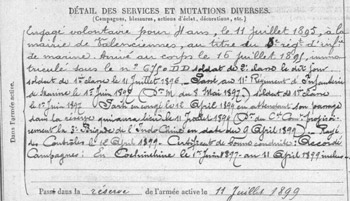 DÉTAIL DES SERVICES ET MUTATIONS DIVERSES.
(Campagnes, blessures, actions d'éclat, décorations, etc.)
Engagé volontaire pour 4 ans, le 11 Juillet 1895, à la
mairie de Valenciennes, au titre du régt d'inf
de marine. Arrivé au corps le 16 Juillet 1895, imma
triculé sous le no soldat de 2e classe le dit jour
soldat de 1e classe le 11 Juillet 1896 – Passé au 11e Régiment d'Infanterie
de Marine le 1897 du 5 Mai 1897). Soldat de 1e classe
le 1er Juin 1897 Parti en congé le 18 Avril 1899 en attendant son passage
dans la réserve qui aura lieu le 11 Juillet 1899
la 3e Brigade de l'Indo-Chine en date du 9 Avril 1899) – Rayé
des Contrôles le Avril 1899. Certificat de bonne conduite: Accordé
Campagnes: En Cochinchine le 1er Juin 1897 au 11 Avril 1899 inclus
Dans l'armée active.
Passé dans la réserve de l'armée active le 11 Juillet 1899